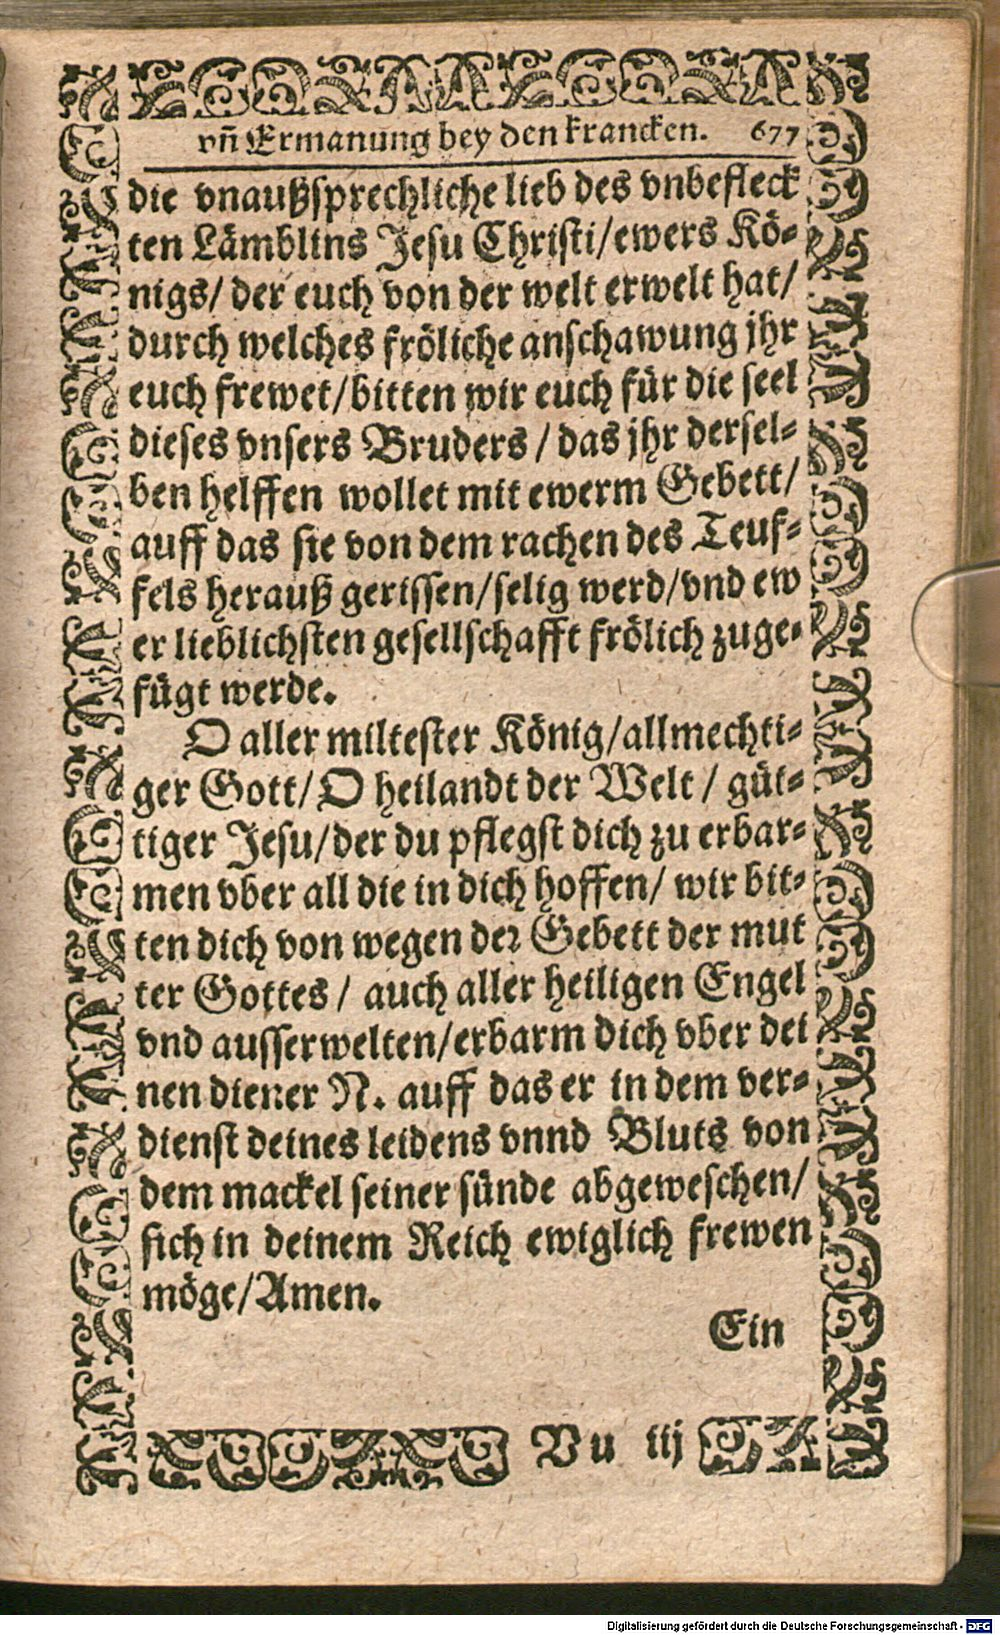 vñ Ermanung bey den krancken. 677
die vnaußsprechliche lieb des vnbefleck
ten Lämblins Jesu Christi/ewers Kö-
nigs/ der euch von der welt erwelt hat/
durch welches fröliche anschawung jhr
euch frewet/bitten wir euch für die seel
dieses vnsers Bruders / das jhr dersel-
ben helffen wollet mit ewerm Gebett/
auff das sie von dem rachen des Teuf-
fels herauß gerissen/selig werd/vnd ew
er lieblichsten gesellschafft frölich zuge-
fügt werde.
O aller miltester König/allmechti-
ger Gott/O heilandt der Welt / güt-
tiger Jesu/der du pflegst dich zu erbar-
men vber all die in dich hoffen/ wir bit-
ten dich von wegen der Gebett der mut
ter Gottes / auch aller heiligen Engel
vnd ausserwelten/erbarm dich vber dei
nen diener N. auff das er in dem ver-
dienst deines leidens vnnd Bluts von
dem mackel seiner sünde abgeweschen/
sich in deinem Reich ewiglich frewen
möge/Amen.
Ein
Vu iij
Digitalisierung gefördert durch die Deutsche Forschungsgemeinschaft - DFG